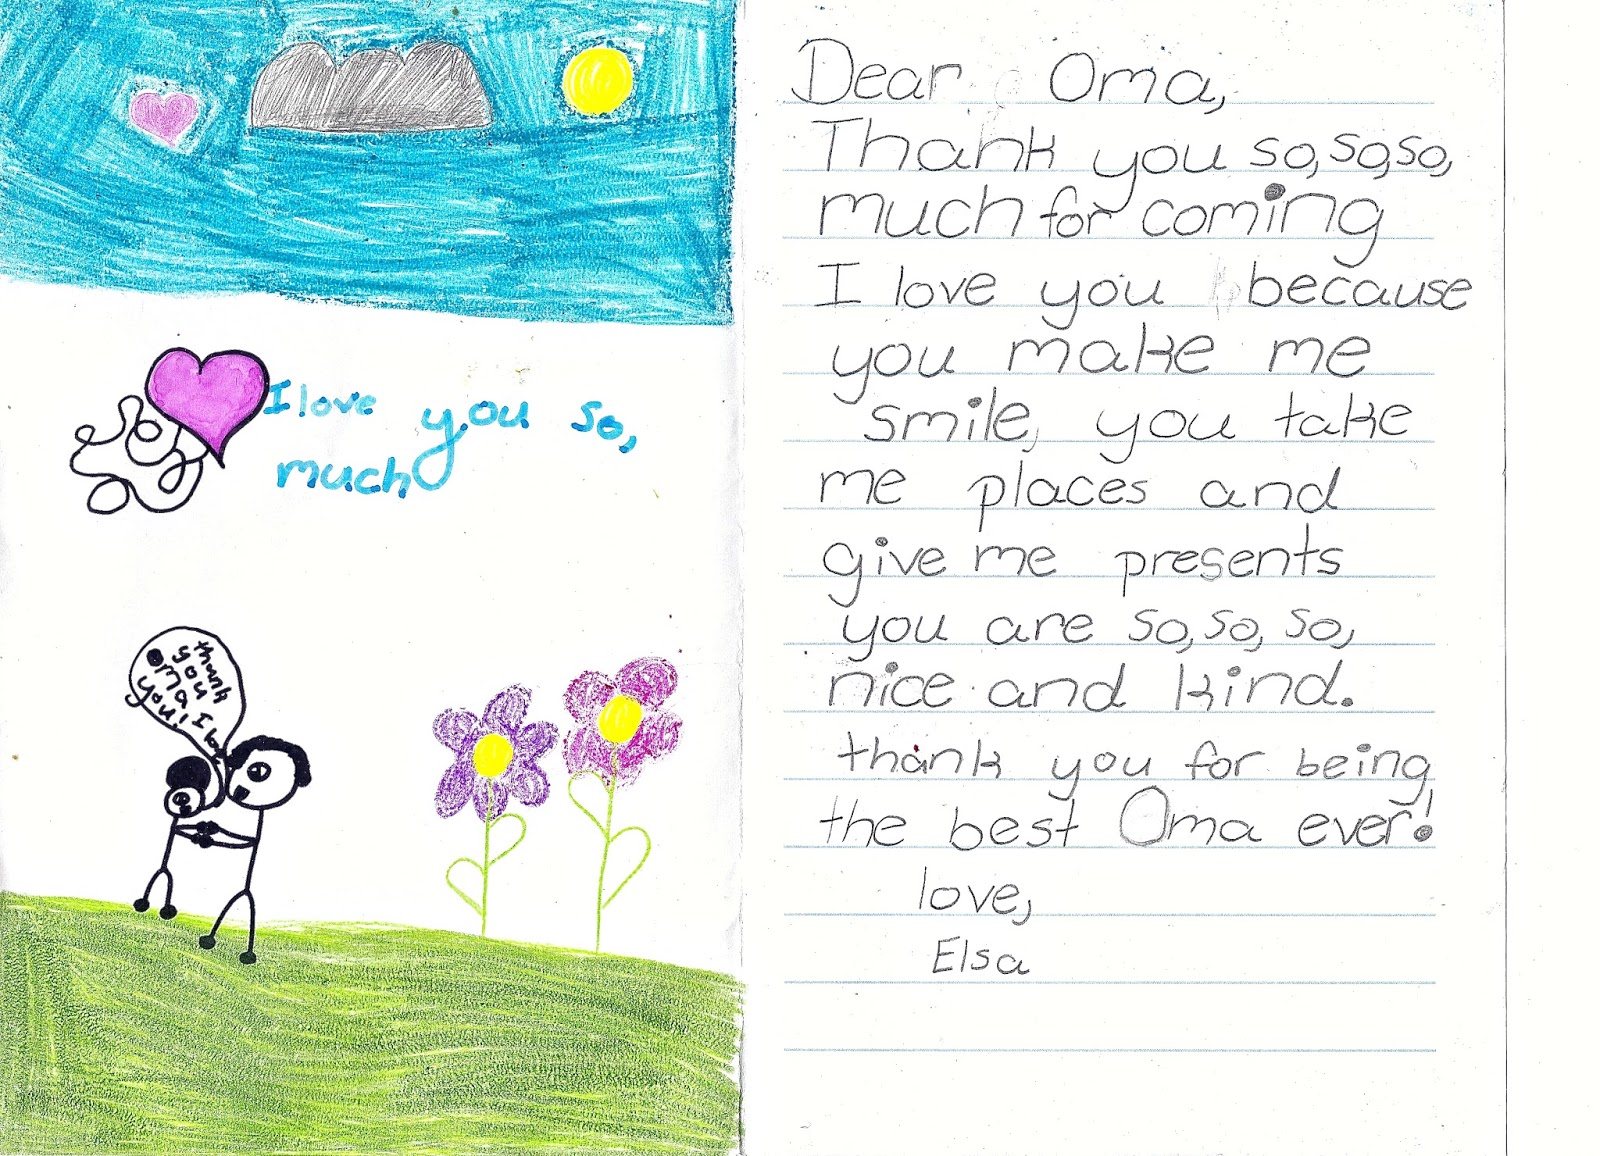 I love you so,
much
thank
you
Oma
you! I love
Dear Oma,
Thank you so, so, so,
much for coming
I love you because
you make me
smile, you take
me places and
give me presents
you are so, so, so,
nice and kind.
thank you for being
the best Oma ever!
love,
Elsa